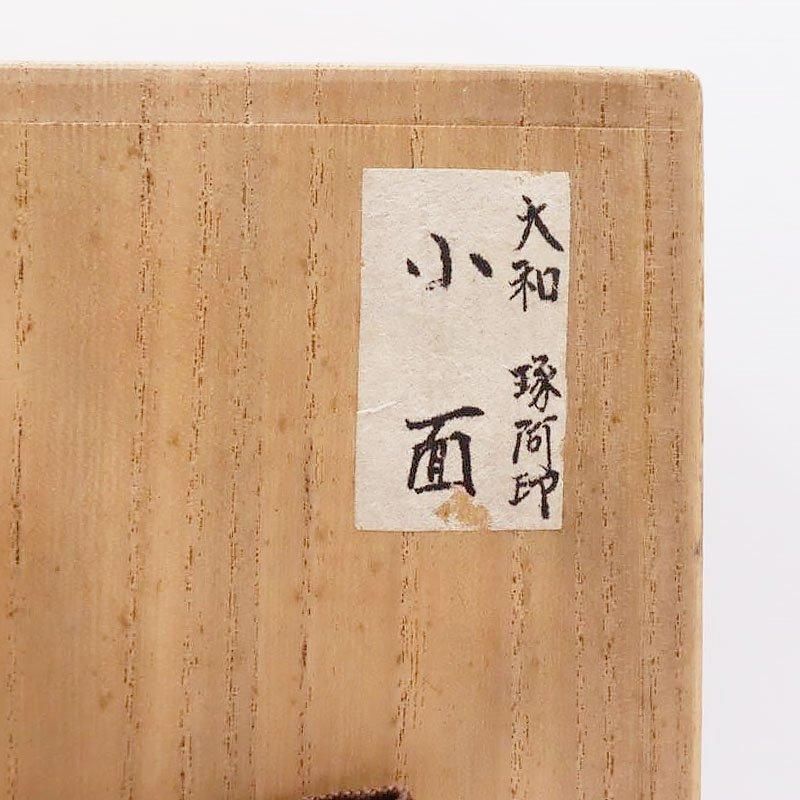 大和 琢阿印
小面